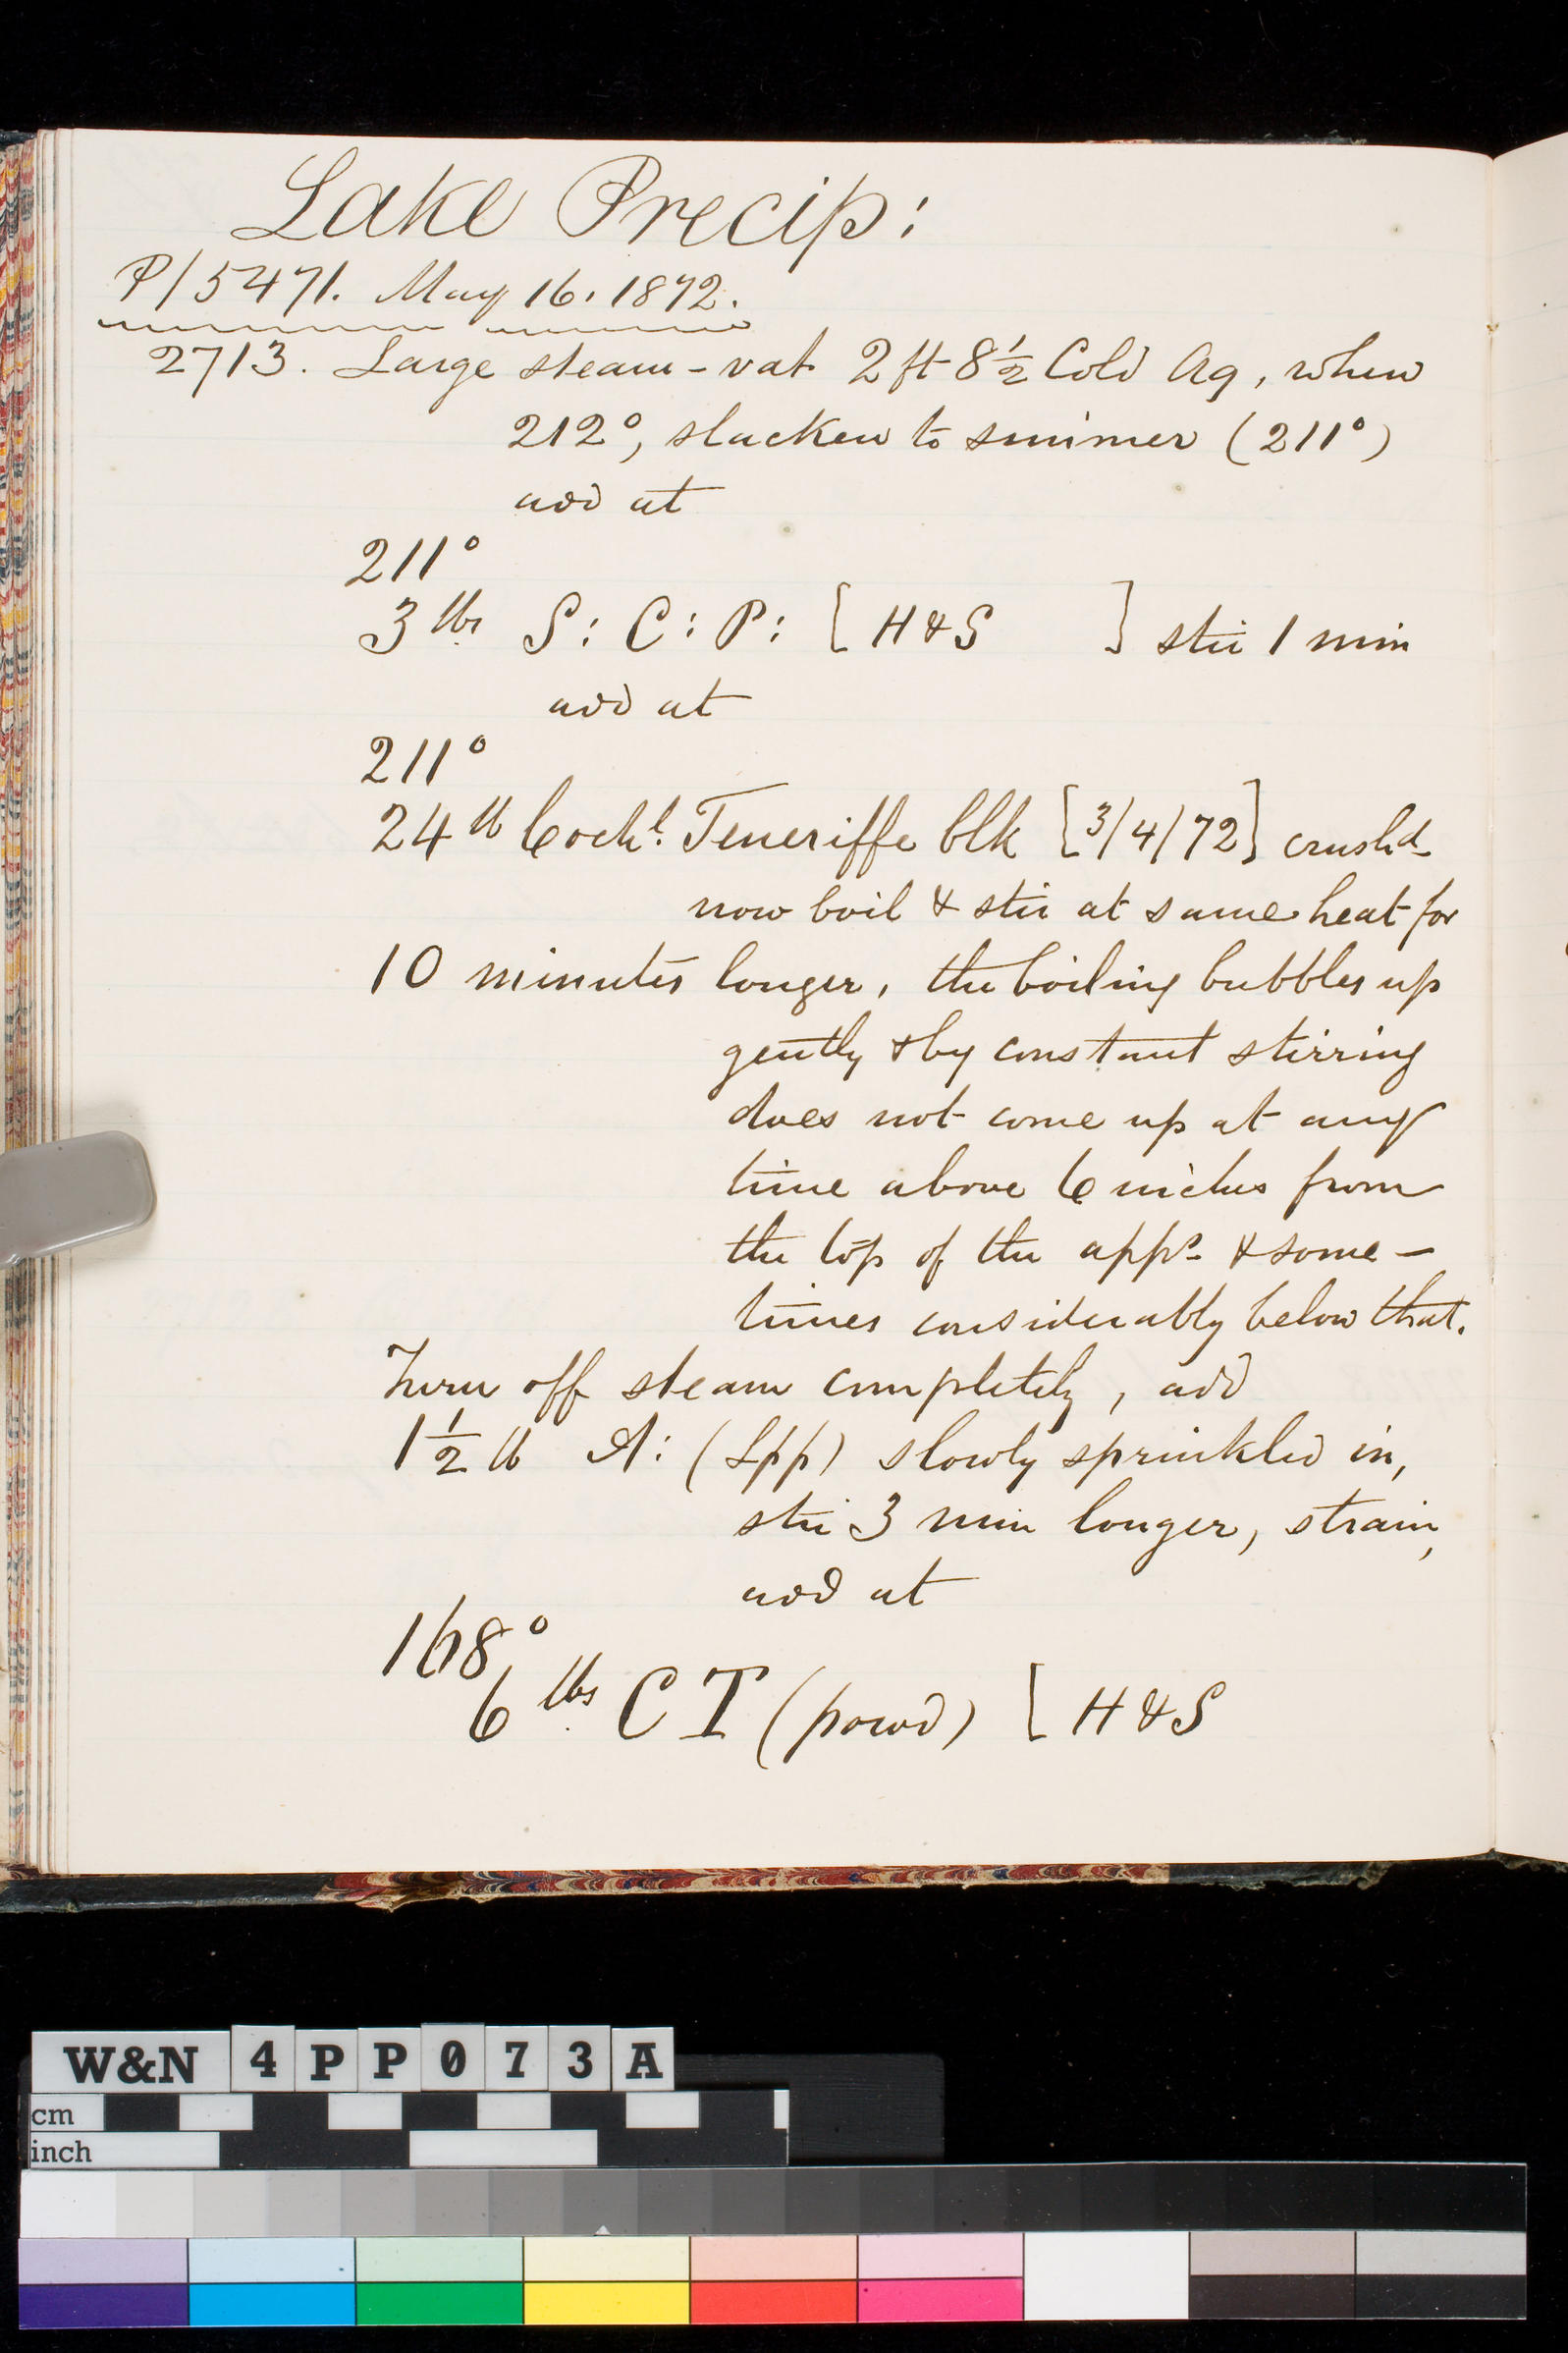 Lake Precip:
P/5471. May 16. 1872.
2713. Large steam-vat 2 ft 8½ Cold Aq, when
212°, slacken to simmer (211°)
add at
211°
3 lbs S: C: P: [H & S ] stir 1 min
add at
211°
24 lb Cochl. Teneriffe blk [3/4/72] crushd
now boil & stir at same heat for
10 minutes longer, the boiling bubbles up
gently & by constant stirring
does not come up at any
time above 6 inches from
the top of the apps & some-
times considerably below that.
Turn off steam completely, add
1½ lb A: (Lpp) slowly sprinkled in,
stir 3 min longer, strain,
add at
168°
6 lbs C T (powd) [H & S
W&N 4PP073A
cm
inch